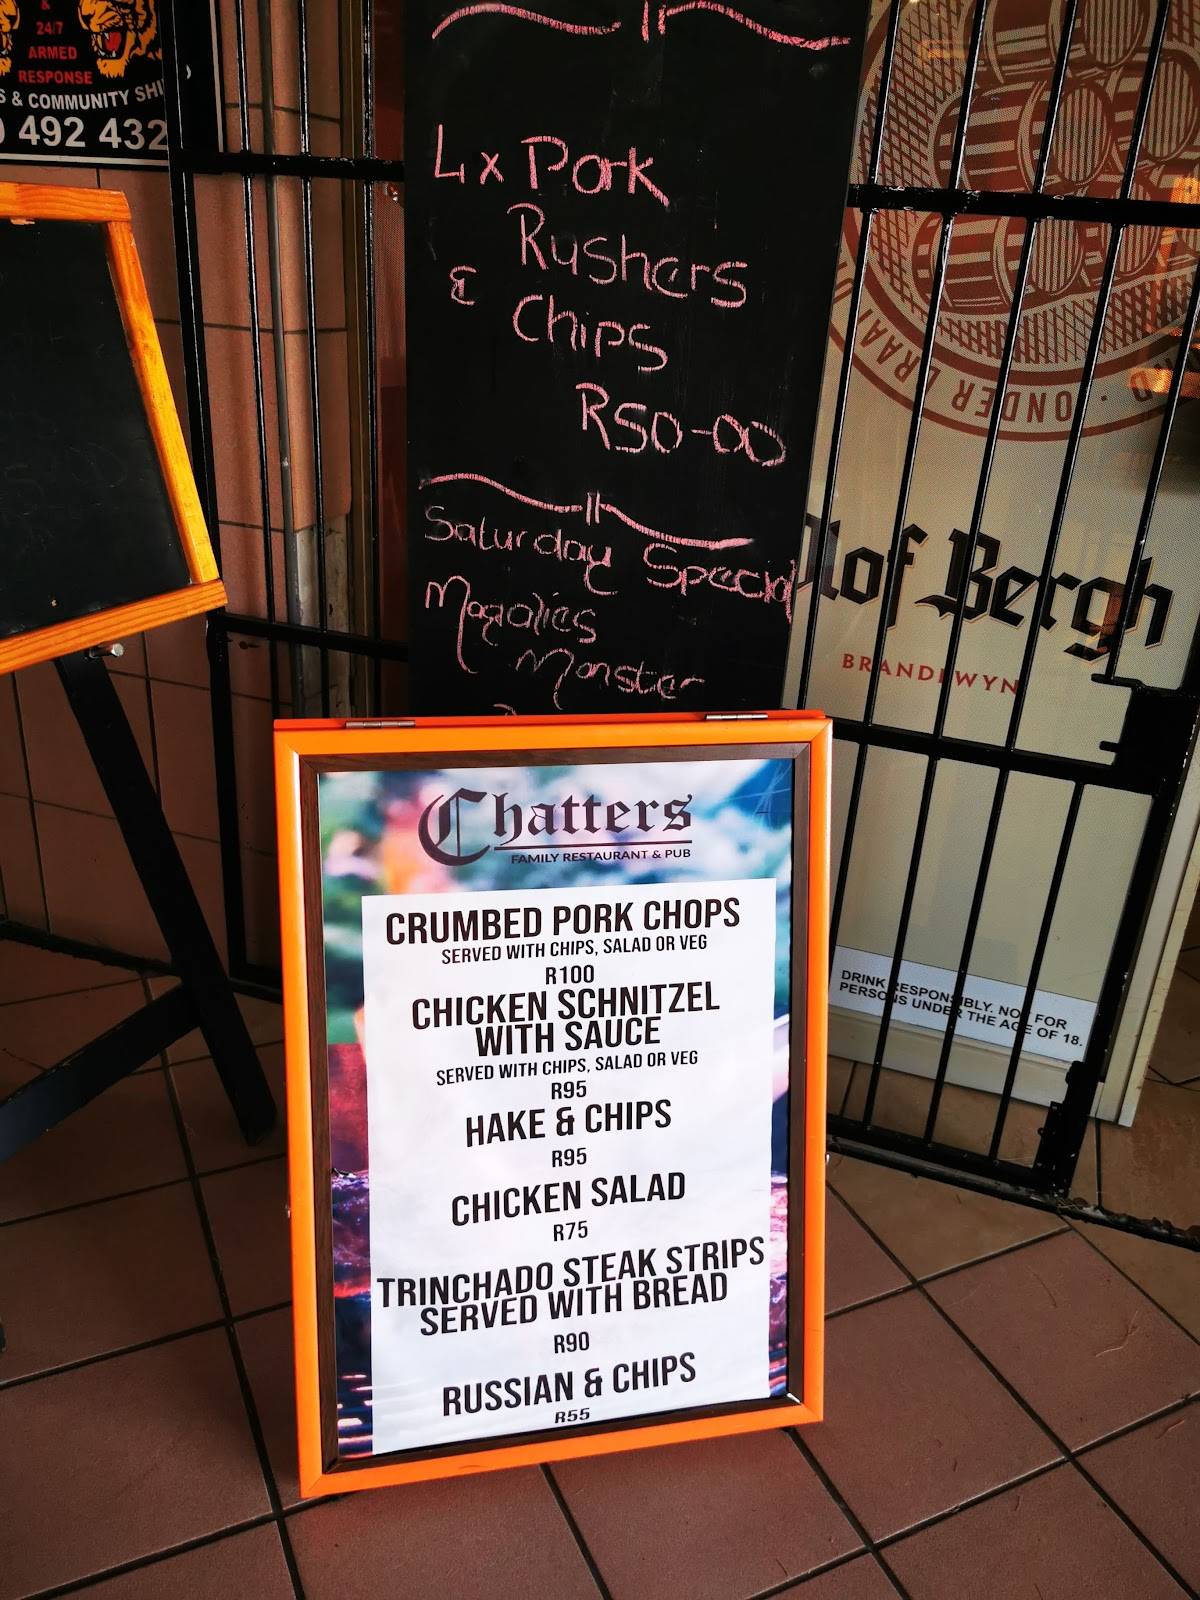 &
24/7
ARMED
RESPONSE
& COMMUNITY
492 432
4x Pork
Rushers
& Chips
R50-00
Saturday Special
Magalies
Monster
ONDER
Olof Bergh
BRANDEWYN
DRINK RESPONSIBLY. NOT FOR
PERSONS UNDER THE AGE OF 18.
Chatters
FAMILY RESTAURANT & PUB
CRUMBED PORK CHOPS
SERVED WITH CHIPS, SALAD OR VEG
R100
CHICKEN SCHNITZEL
WITH SAUCE
SERVED WITH CHIPS, SALAD OR VEG
R95
HAKE & CHIPS
R95
CHICKEN SALAD
R75
TRINCHADO STEAK STRIPS
SERVED WITH BREAD
R90
RUSSIAN & CHIPS
R55